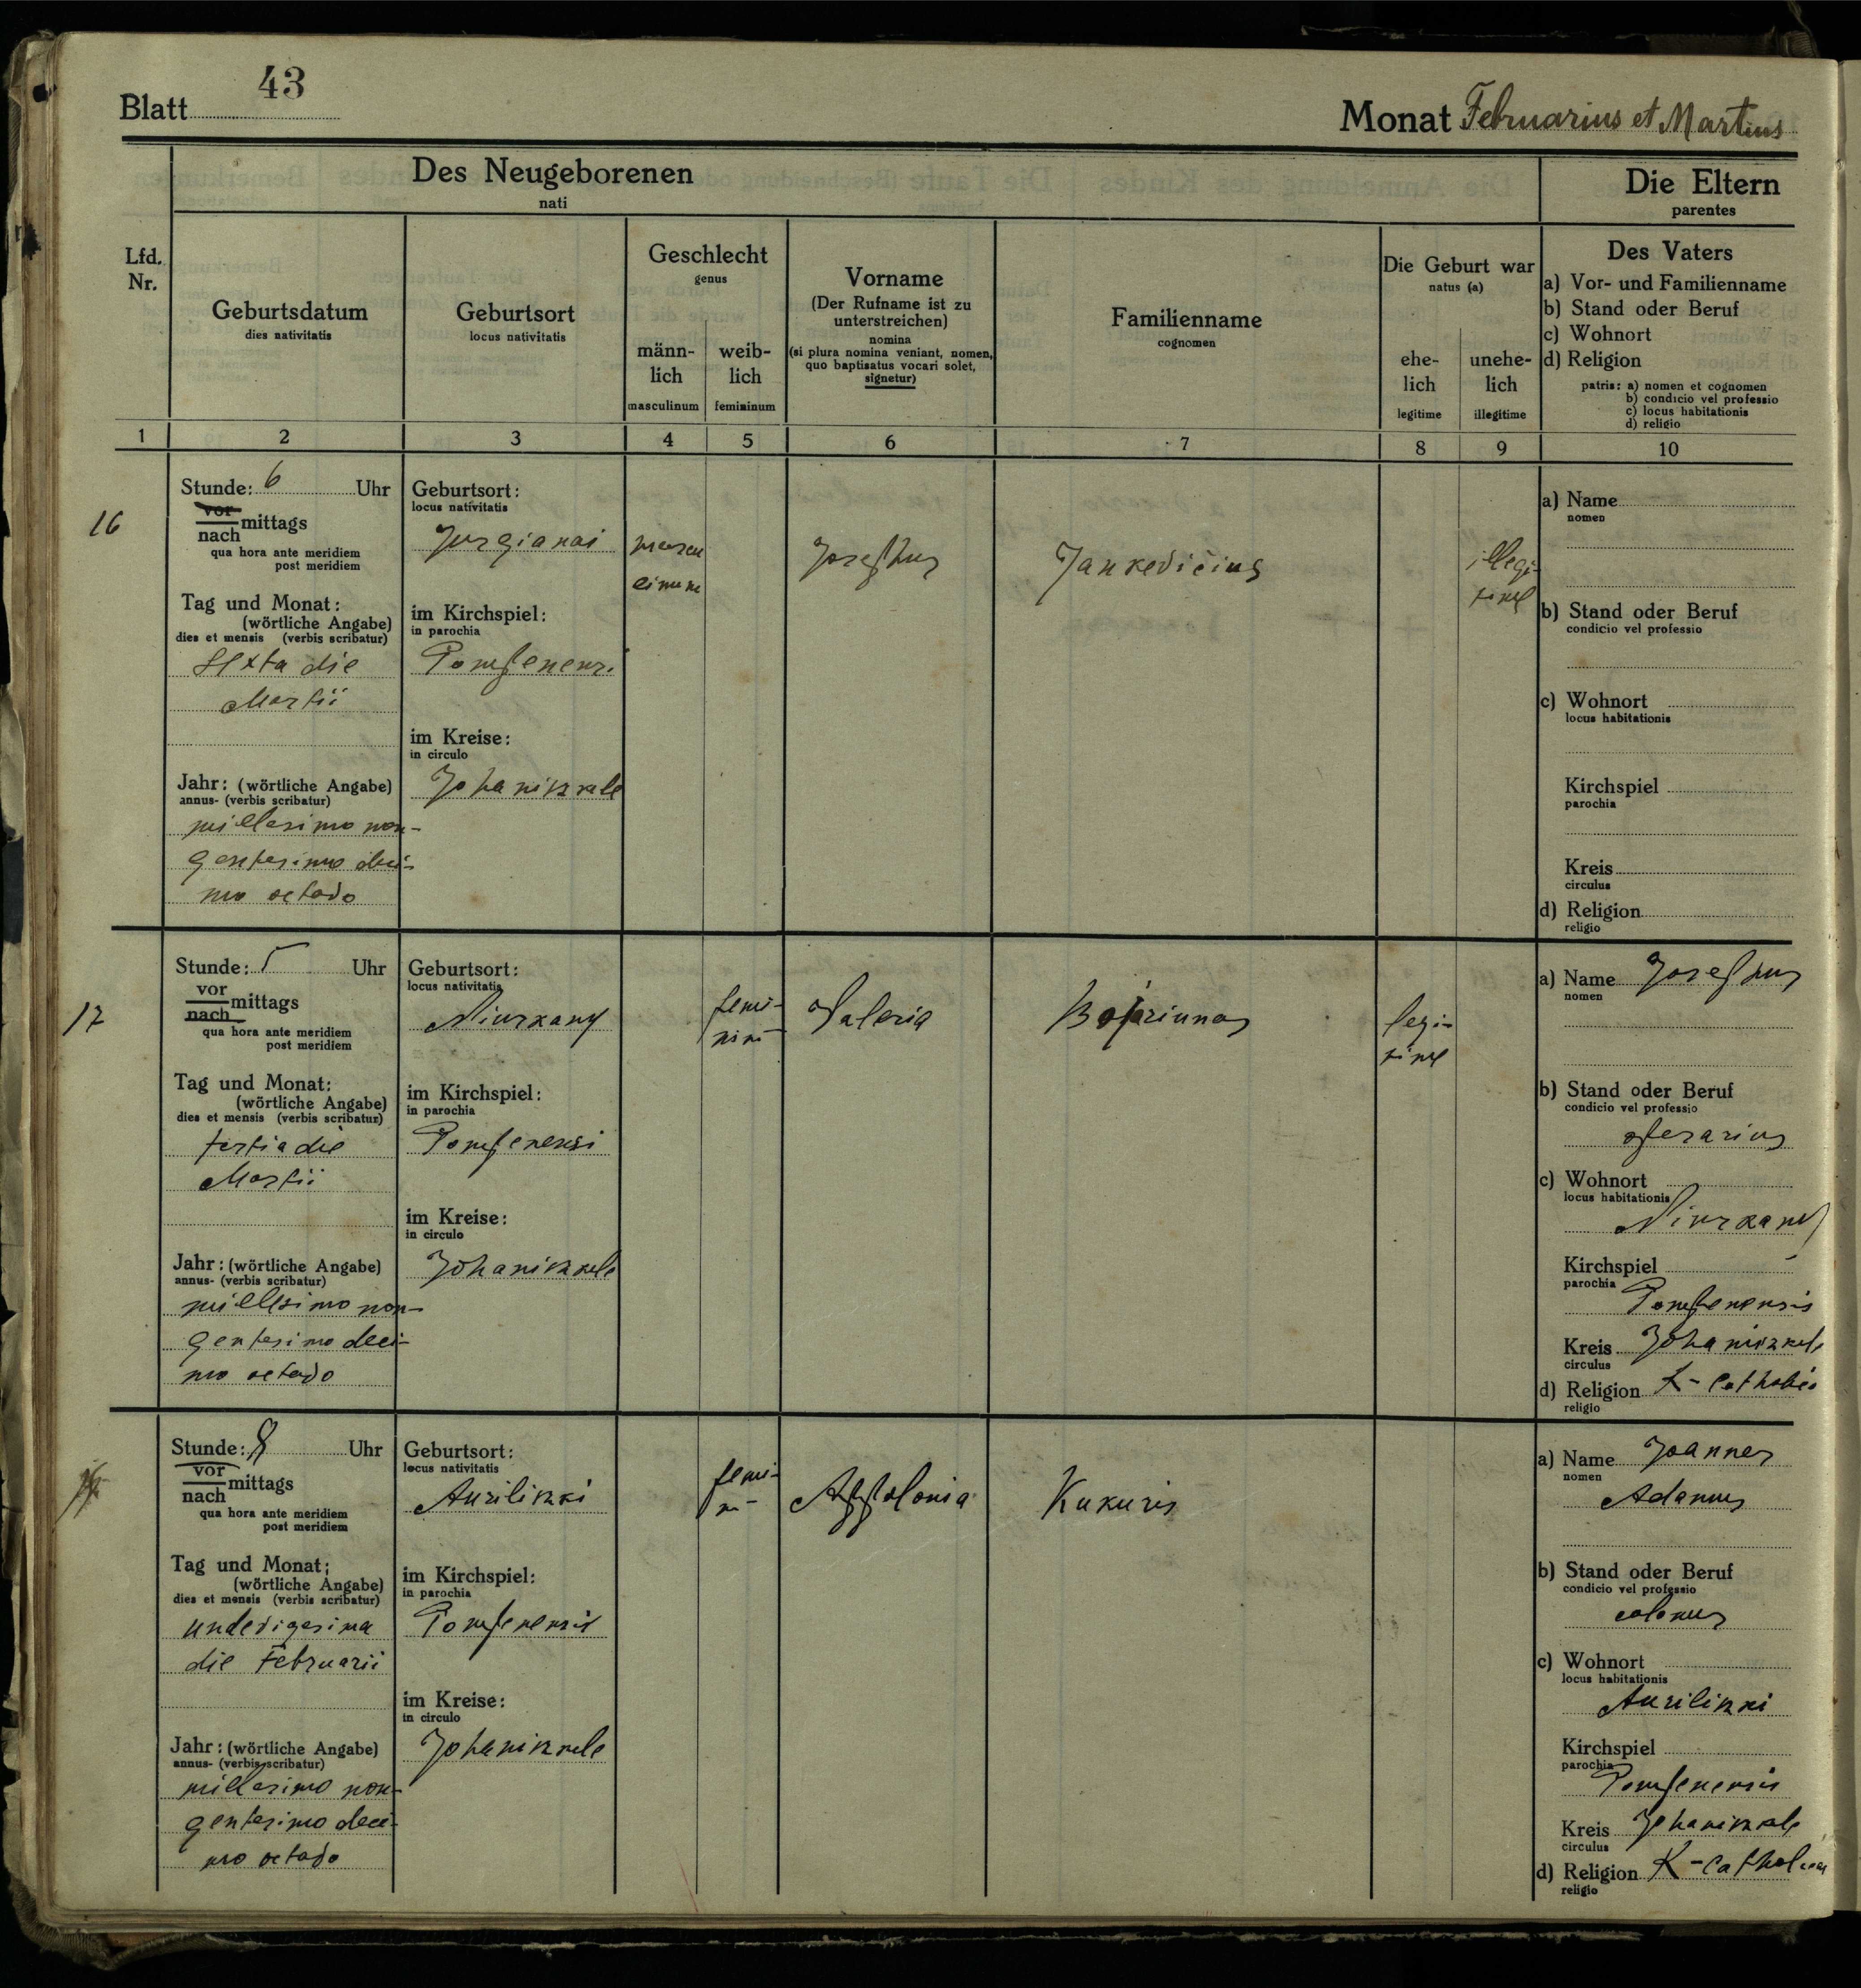 43
Blatt
Monat Februarius et Martius
Des Neugeborenen
nati
Die Eltern
parentes
Lfd.
Nr.
Geburtsdatum
dies nativitatis
Geburtsort
locus nativitatis
Geschlecht
genus
männ-
lich
masculinum
weib-
lich
femininum
Vorname
(Der Rufname ist zu
unterstreichen)
nomina
(si plura nomina veniant, nomen,
quo baptisatus vocari solet,
signetur)
Familienname
cognomen
Die Geburt war
natus (a)
ehe-
lich
legitime
unehe-
lich
illegitime
Des Vaters
a) Vor- und Familienname
b) Stand oder Beruf
c) Wohnort
d) Religion
patris: a) nomen et cognomen
b) condicio vel professio
c) locus habitationis
d) religio
1 2 3 4 5 6 7 8 9 10
16
Stunde: 6 Uhr
vor
nach mittags
qua hora ante meridiem
post meridiem
Tag und Monat:
(wörtliche Angabe)
dies et mensis (verbis scribatur)
sexta die
Martii
Jahr: (wörtliche Angabe)
annus- (verbis scribatur)
millesimo non-
gentesimo deci-
mo octavo
Geburtsort:
locus nativitatis
Jurgianai
im Kirchspiel:
in parochia
Pompenens.
im Kreise:
in circulo
Johaniszkele
mascu
linum
Josephus
Jankevičius
illegi-
time
a) Name
nomen
b) Stand oder Beruf
condicio vel professio
c) Wohnort
locus habitationis
Kirchspiel
parochia
Kreis
circulus
d) Religion
religio
17
Stunde: 5 Uhr
vor
nach mittags
qua hora ante meridiem
post meridiem
Tag und Monat:
(wörtliche Angabe)
dies et mensis (verbis scribatur)
tertia die
Martii
Jahr: (wörtliche Angabe)
annus- (verbis scribatur)
millesimo non-
gentesimo deci-
mo octavo
Geburtsort:
locus nativitatis
Niurkany
im Kirchspiel:
in parochia
Pompenensi
im Kreise:
in circulo
Johaniszkele
femi-
nini
Valeria
Bojarinnas
legi-
time
a) Name Josephus
nomen
b) Stand oder Beruf
condicio vel professio
operarius
c) Wohnort
locus habitationis
Niurkany
Kirchspiel
parochia
Pompenensis
Kreis Johaniszkele
circulus
d) Religion R-Catholic
religio
Stunde: 8 Uhr
vor
nach mittags
qua hora ante meridiem
post meridiem
Tag und Monat:
(wörtliche Angabe)
dies et mensis (verbis scribatur)
undevigesima
die Februarii
Jahr: (wörtliche Angabe)
annus- (verbis scribatur)
millesimo non-
gentesimo deci-
mo octavo
Geburtsort:
locus nativitatis
Auriliszki
im Kirchspiel:
in parochia
Pompenensis
im Kreise:
in circulo
Johaniszkele
femi-
ni-
Appolonia
Kukuris
a) Name Joannes
nomen
Adamus
b) Stand oder Beruf
condicio vel professio
colonus
c) Wohnort
locus habitationis
Auriliszki
Kirchspiel
parochia
Pompenensis
Kreis Johaniszkele
circulus
d) Religion R-Catholicus
religio